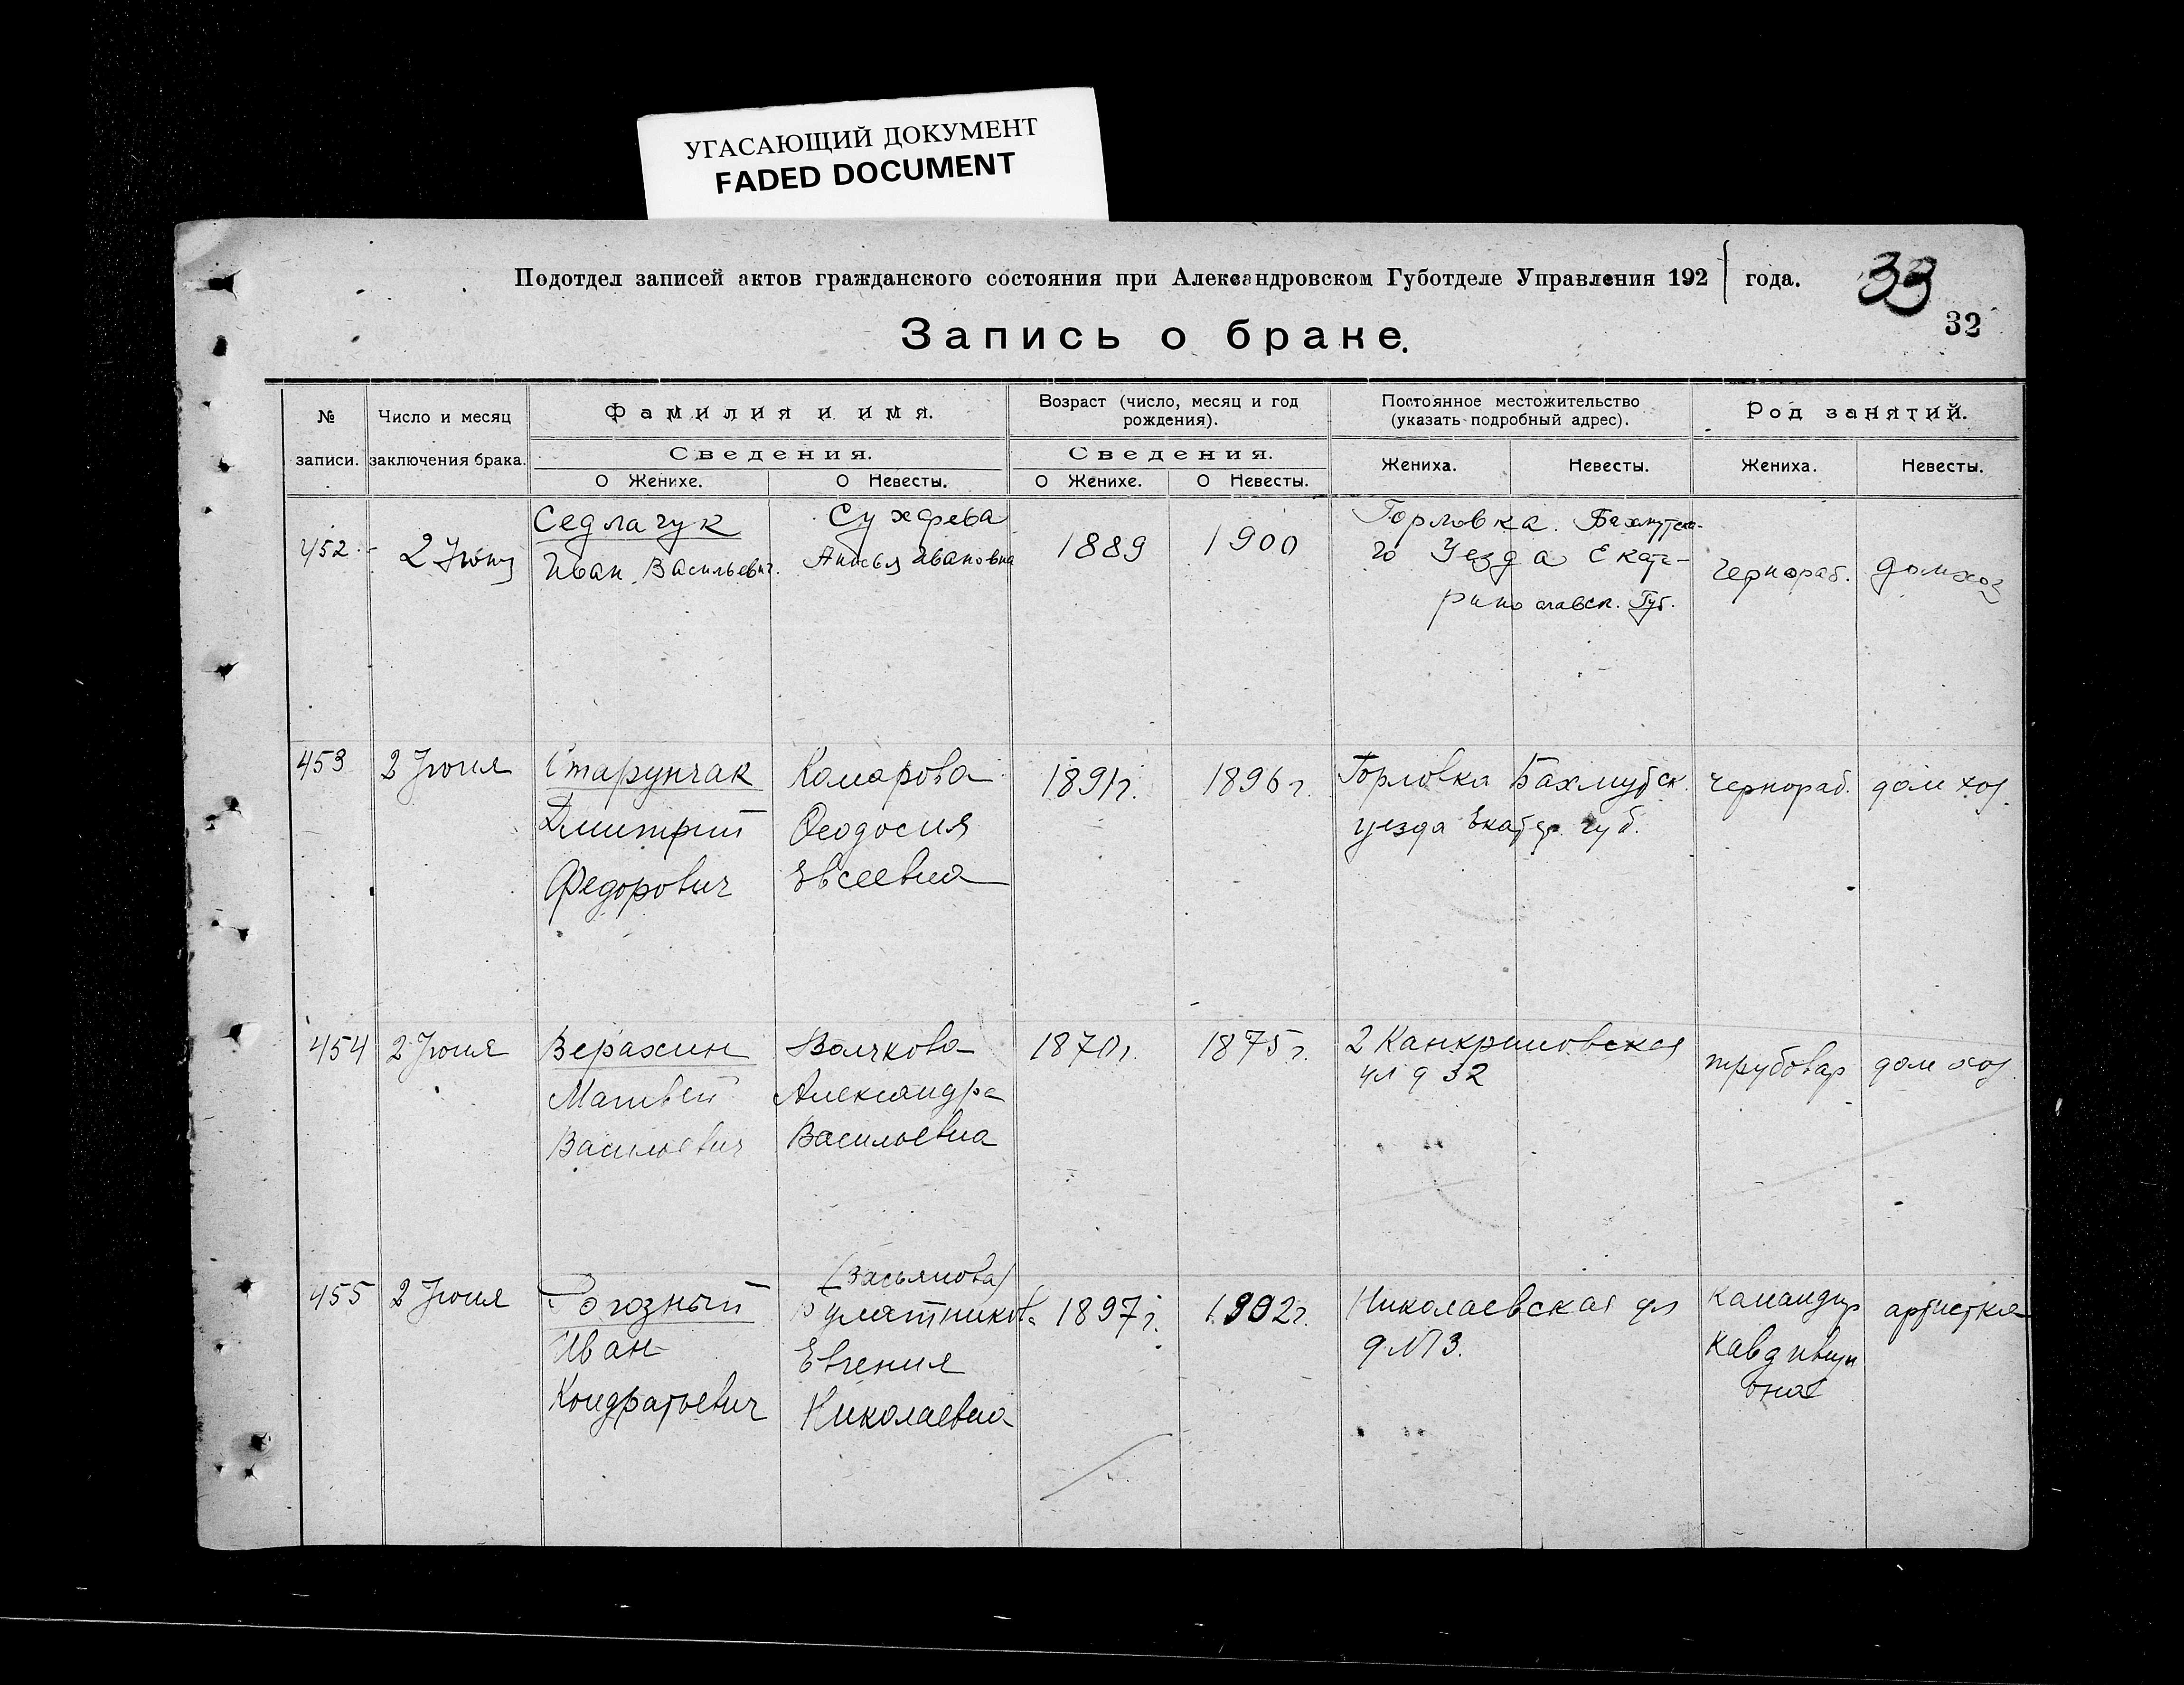 УГАСАЮЩИЙ ДОКУМЕНТ
FADED DOCUMENT
Подотдел записей актов гражданского состояния при Александровском Губотделе Управления 192 года.
33
32
Запись о браке.
№ записи.
Число и месяц заключения брака.
Фамилия и имя.
Сведения.
О Женихе.
О Невесты.
Возраст (число, месяц и год рождения).
Сведения.
О Женихе.
О Невесты.
Постоянное местожительство (указать подробный адрес).
Жениха.
Невесты.
Род занятий.
Жениха.
Невесты.
452
2 Июня
Седлачук
Иван Васильевич
Анисья Ивановна
1889
1900
Горловка. Бахмутско-
го Уезда Екате-
ринославск. Губ.
чернораб.
домхоз
453
2 Июня
Старунчак
Дмитрий
Федорович
Комарова
Феодосия
Евсеевна
1891г.
1896 г.
Горловка Бахмутск.
уезда Екатер. губ.
чернораб.
дом хоз.
454
2 Июня
Матвей
Васильевич
Волчкова
Александра
Васильевна
1870г.
1875 г.
2 Канкриновская
ул д 32
трубовар
дом хоз.
455
2 Июня
Рогозный
Иван
Кондратьевич
(Засьянова)
Евгения
Николаевна
1897 г.
1902г.
Николаевская ул
д №3.
Командир
Кавдивизи
она
артистка